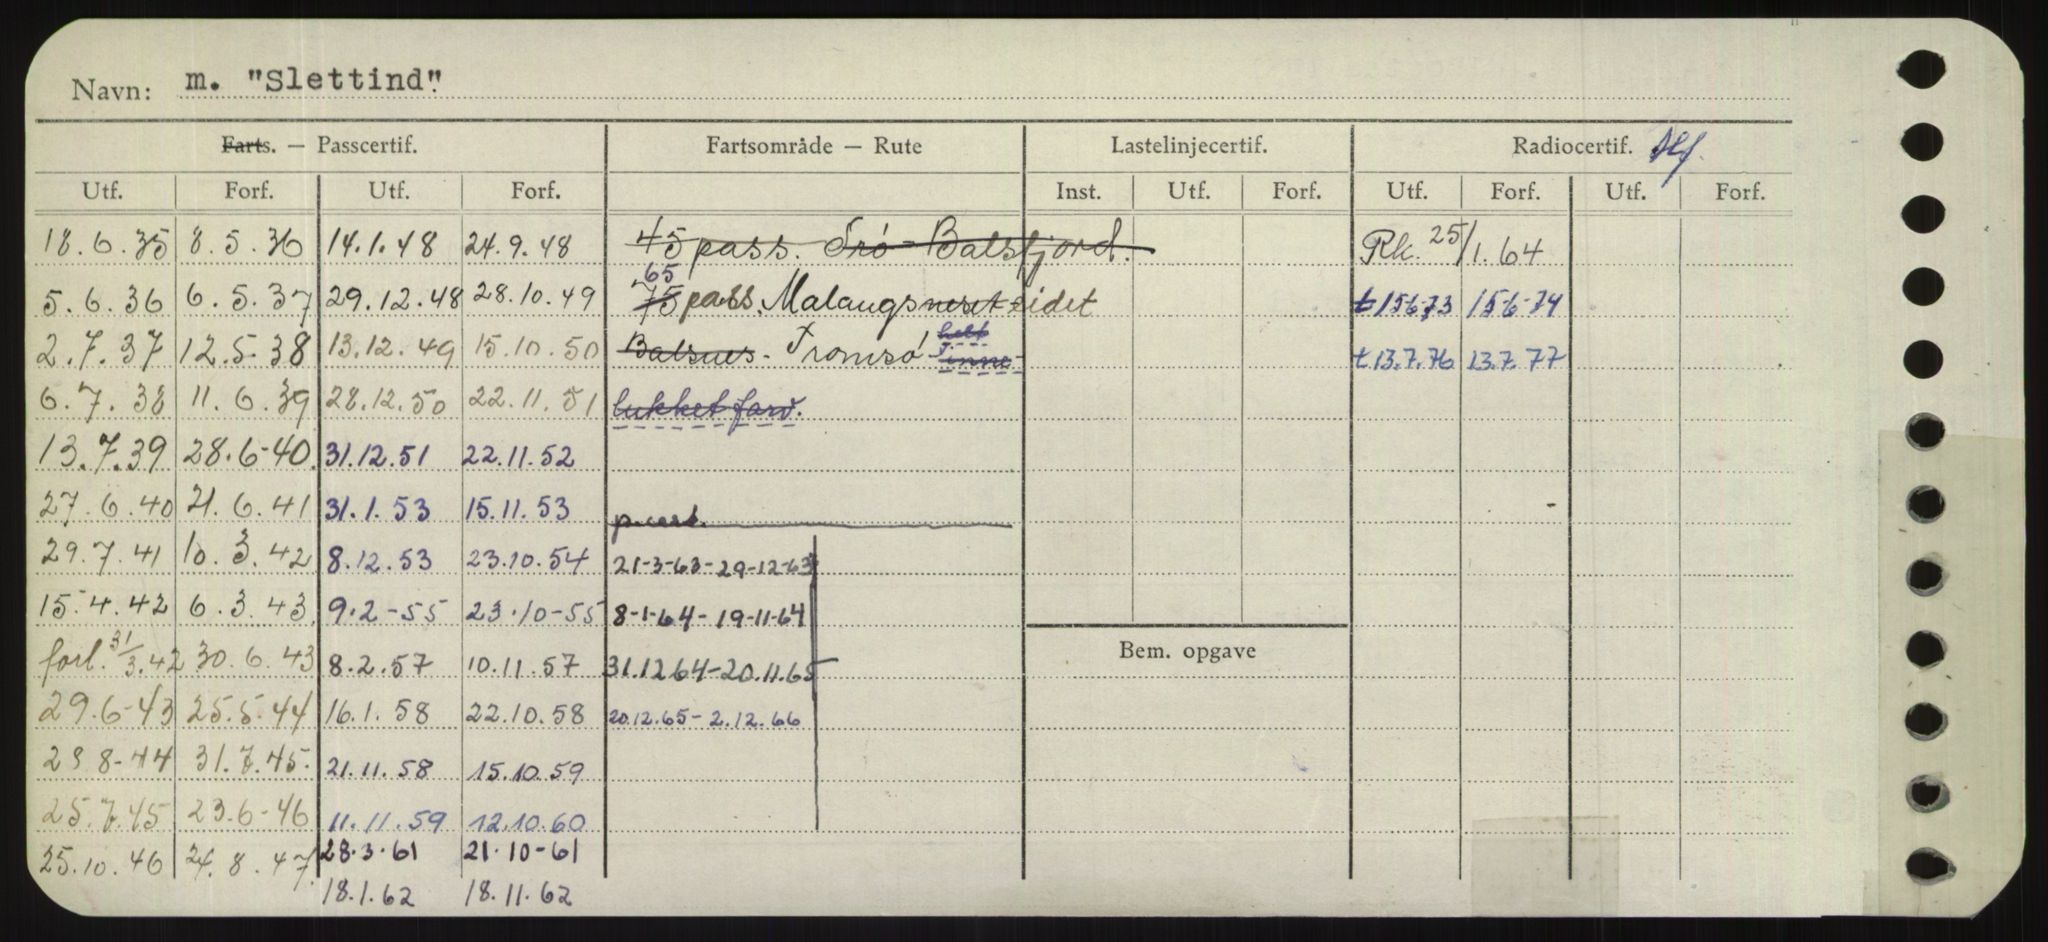 Navn: m. "Slettind".
Farts. — Passcertif. Fartsområde — Rute Lastelinjecertif. Radiocertif.
Utf. Forf. Utf. Forf. Inst. Utf. Forf. Utf. Forf. Utf. Forf.
18.6.35 8.5.36 14.1.48 24.9.48 45 pass. Trø - Balsfjord. Rk. 25/1.64
65
5.6.36 6.5.37 29.12.48 28.10.49 75 pass. Malangsneset-eidet t 15-6-73 15-6-74
helt
2.7.37 12.5.38 13.12.49 15.10.50 Balsnes - Tromsø i inne- t 13.7.76 13.7.77
6.7.38 11.6.39 28.12.50 22.11.51 lukket farv.
13.7.39 28.6-40. 31.12.51 22.11.52
27.6.40 21.6.41 31.1.53 15.11.53 p.cert.
29.7.41 10.3.42 8.12.53 23.10.54 21-3-63-29-12-63
15.4.42 6.3.43. 9.2-55 23.10-55 8-1-64-19-11-64
forl. 31/3.42 30.6.43 8.2.57 10.11.57 31.12 64-20.11.65
Bem. opgave
29.6-43 25.5.44 16.1.58 22.10.58 20.12.65-2.12.66
23 8-44 31.7.45- 21.11.58 15.10.59
25.7.45 23.6-46 11.11.59 12.10.60
25.10.46 24.8.47. 28.3.61 21.10-61
18.1.62 18.11.62